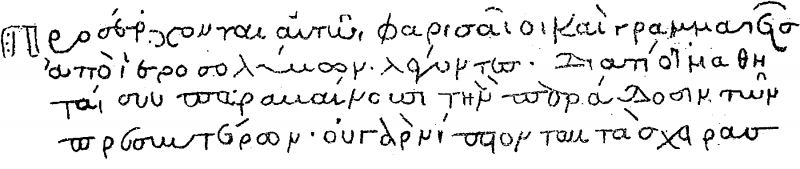 Προσέρχονται αὐτῶι φαρισαῖοι καὶ γραμματεῖσ
ἀπὸ ἱεροσολύμων· λέγοντεσ· Διατί οἱ μαθη
ταί σου παραβαίνουσι τὴν παράδοσιν τῶν
πρεσβυτέρων· οὐ γὰρ νίπτονται τὰσ χεῖρασ